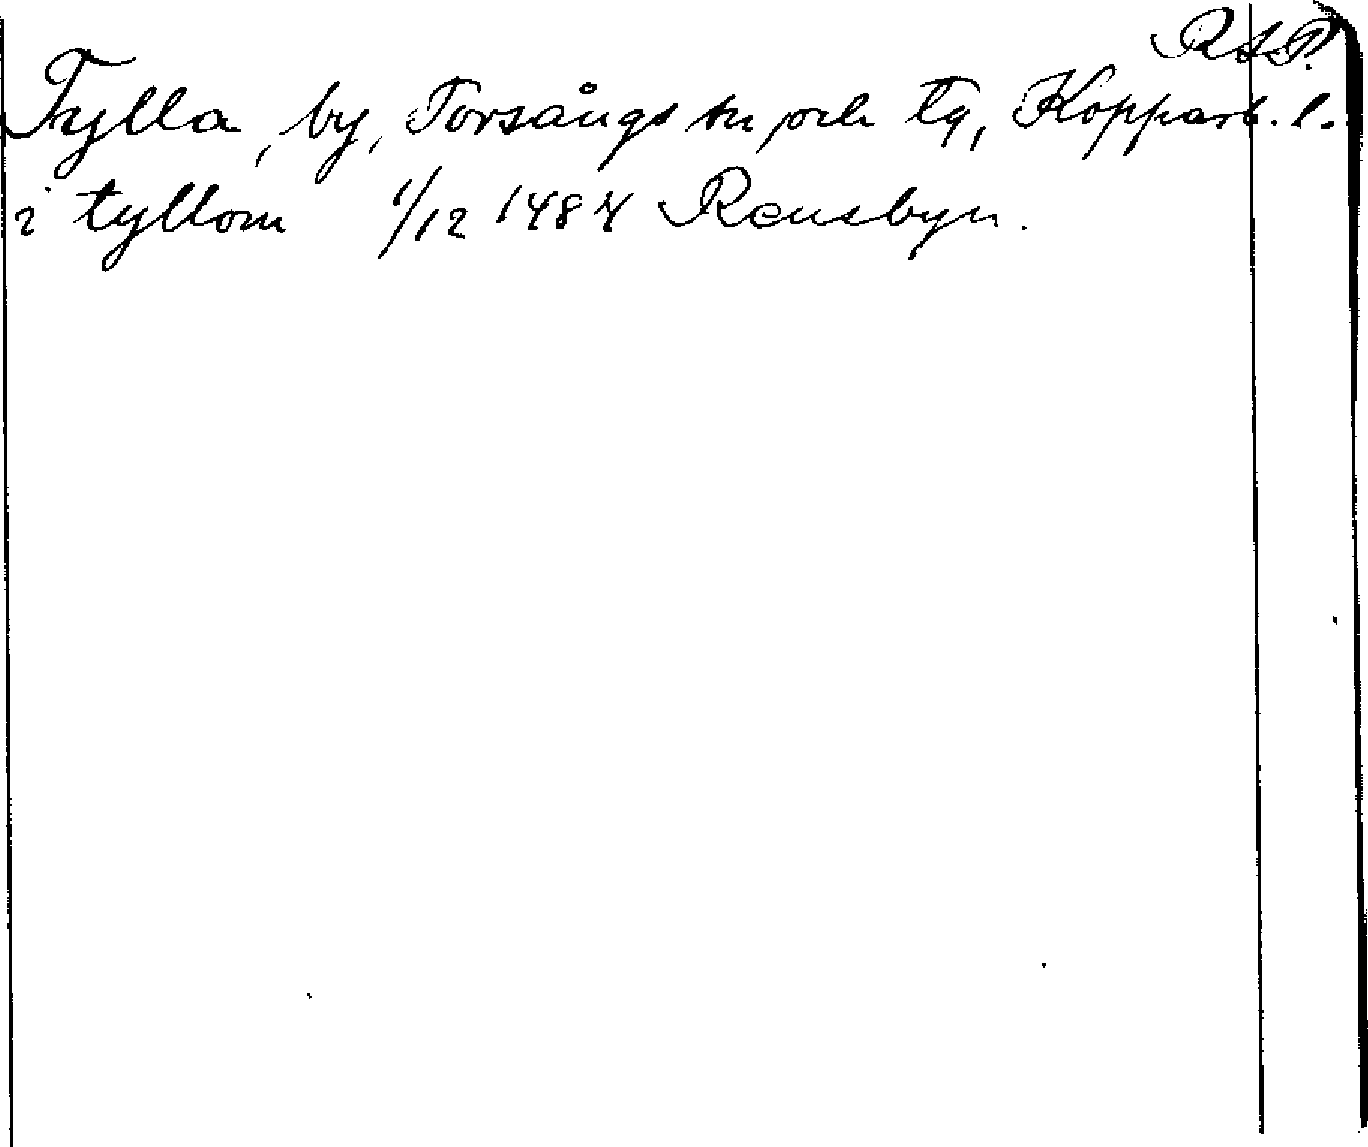 RAP.
Tylla, by, Torsångs sn och tg, Kopparb. l.
i tyllom 1/12 1484 Rensbyn.